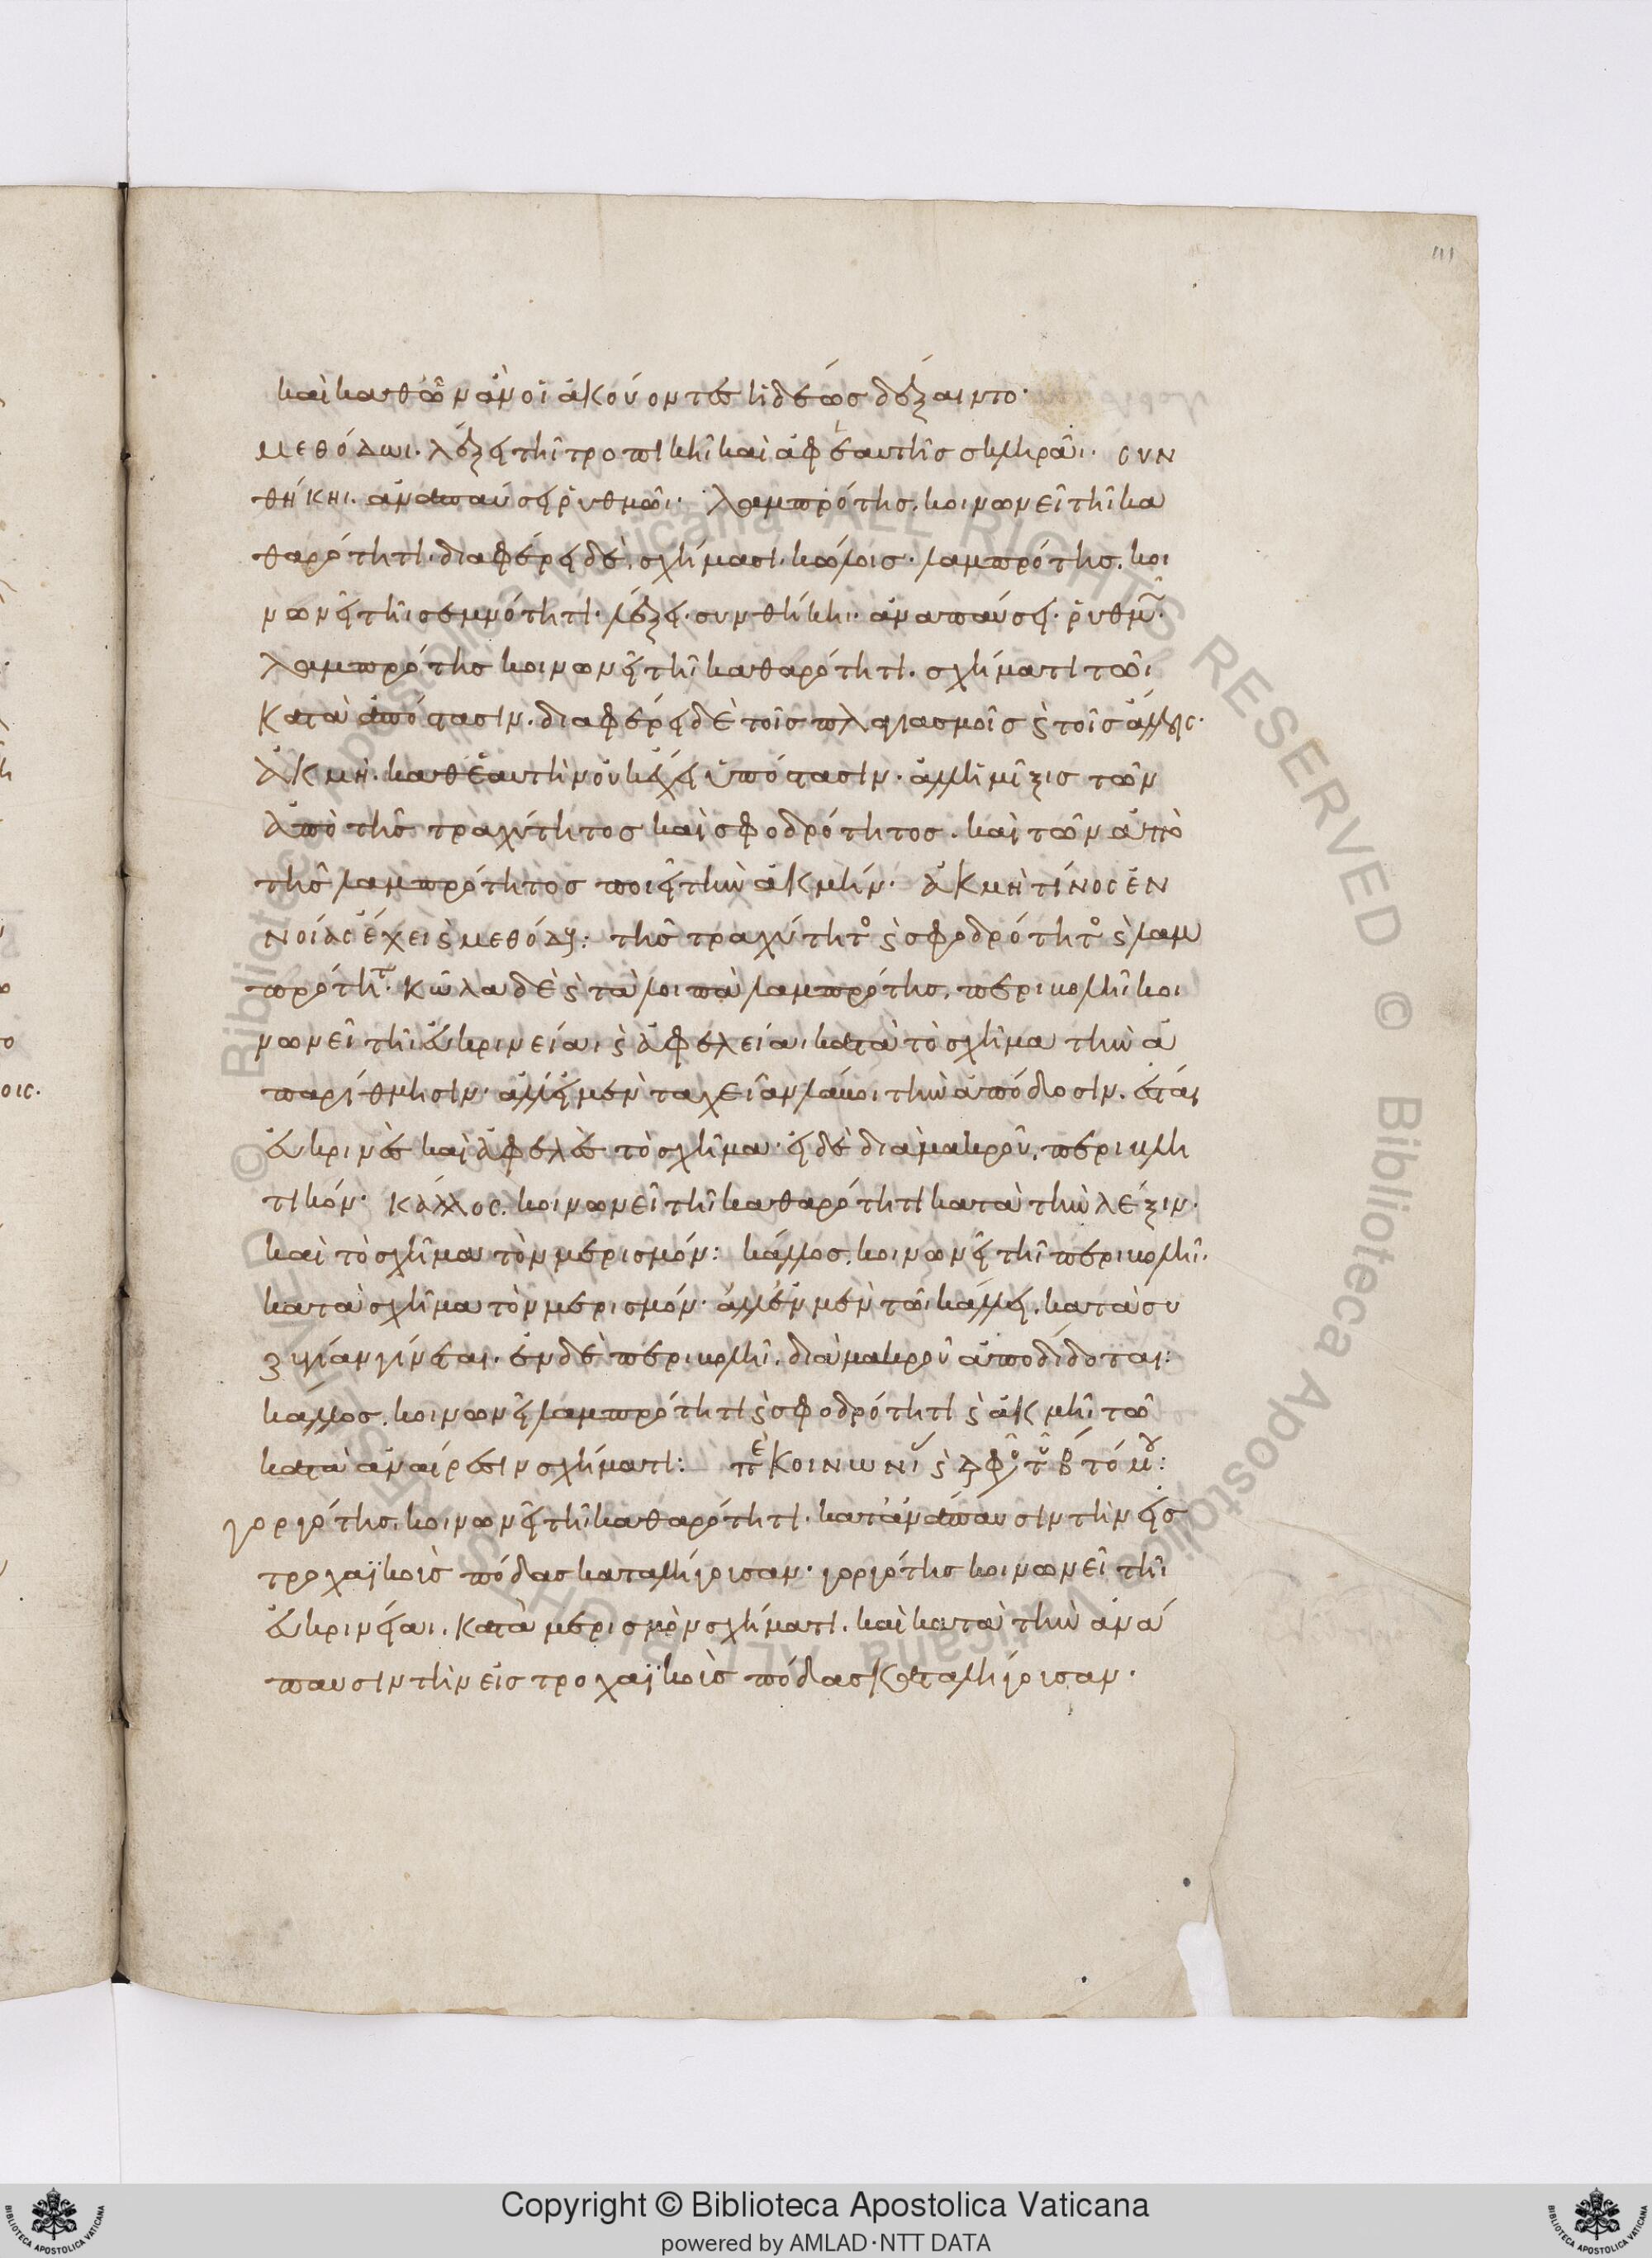 111
καὶ καθ' ὧν ἂν οἱ ἀκούοντες ἡδέως δέξαιντο·
μεθόδωι· λέξει τῆι τροπικῆι καὶ ἀφ' ἑαυτῆς σκληρᾶι· συν
θήκηι· ἀναπαύσει ῥυθμῶι· λαμπρότης. κοινωνεῖ τῆι κα
θαρότητι· διαφέρει δὲ. σχήμασι. κώλοις· λαμπρότης. κοι
νωνεῖ τῆι σεμνότητι· λέξει· συνθήκηι· ἀναπαύσει· ῥυθμῶ·
λαμπρότης κοινωνεῖ τῆι καθαρότητι. σχήματι τῶι
κατὰ ἀπόστασιν. διαφέρει δὲ τοῖς πλαγιασμοῖς ϗ τοῖς ἄλλοις·
ἀκμὴ. καθ' ἑαυτὴν οὐκ ἔχει ὑπόστασιν· ἀλλ' ἡ μῖξις τῶν
ἀπὸ τῆς τραχύτητος καὶ σφοδρότητος. καὶ τῶν ἀπὸ
τῆς λαμπρότητος ποιεῖ τὴν ἀκμήν· ἀκμὴ τίνος ἐν
νοίας ἔχει ϗ μεθόδου: τῆς τραχύτητο ϗ σφοδρότητο ϗ λαμ
πρότητ· κῶλα δὲ ϗ τὰ λοιπὰ λαμπρότης. περικολῆι κοι
νωνεῖ τῆι εὐκρινείαι ϗ ἀφελείαι κατὰ τὸ σχῆμα τὴν ἀ
παρίθμησιν· ἀλλ' εἰ μὲν ταχεῖαν λάκοι τὴν ἀπόδοσιν. ἔσται
εὐκρινὲς καὶ ἀφελὲς τὸ σχῆμα· εἰ δὲ διὰ μακροῦ, περικλη
τικόν· κάλλος. κοινωνεῖ τῆι καθαρότητι κατὰ τὴν λέξιν·
καὶ τὸ σχῆμα τὸν μερισμόν: κάλλος. κοινωνεῖ τῆι περικολῆι.
κατὰ σχῆμα τὸν μερισμόν· ἀλλ' ἐν μὲν τῶι κάλλει. κατὰ συ
ζυγίαν γίνεται· ἐν δὲ περικολῆι. διὰ μακροῦ ἀποδίδοται:
κάλλος. κοινωνεῖ λαμπρότητι ϗ σφοδρότητι ϗ ἀκμῆι τῶ
κατὰ ἀναίρεσιν σχήματι:
γοργότης. κοινωνεῖ τῆι καθαρότητι. κατ' ἀνάπαυσιν τὴν εἰς
τροχαϊκοὺς πόδας καταλήγουσαν· γοργότης κοινωνεῖ τῆι
εὐκρινείαι. κατὰ μερισμὸν σχήματι. καὶ κατὰ τὴν ἀνά
παυσιν τὴν εἰς τροχαϊκοὺς πόδας καταλήγουσαν·
© Biblioteca Apostolica Vaticana ALL RIGHTS RESERVED
Copyright © Biblioteca Apostolica Vaticana
powered by AMLAD·NTT DATA
BIBLIOTECA APOSTOLICA VATICANA